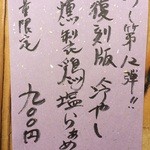 第12弾!!
復刻版 冷やし
燻製鶏塩らぁめ
量限定
九〇〇円